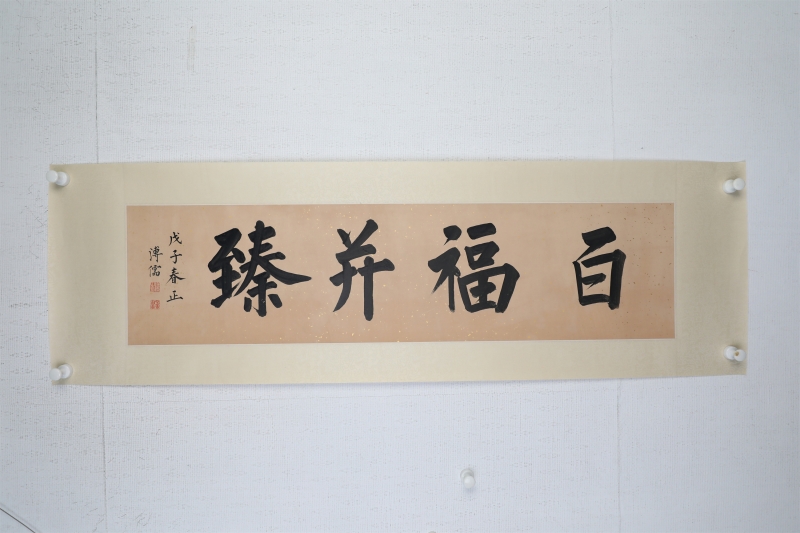 百福并臻
戊子春正
溥儒